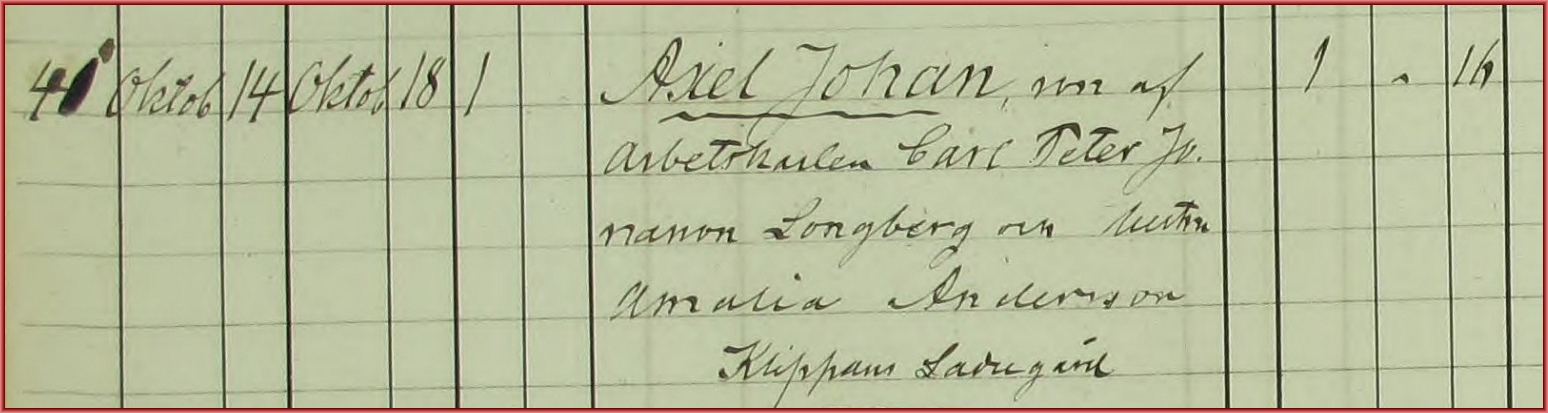 Oktob 14 Oktob 18 1 Axel Johan, son af 1 16
Arbetskarlen Carl Peter Jo.
nasson Longberg och
Amalia Andersson
Klippans Ladugård